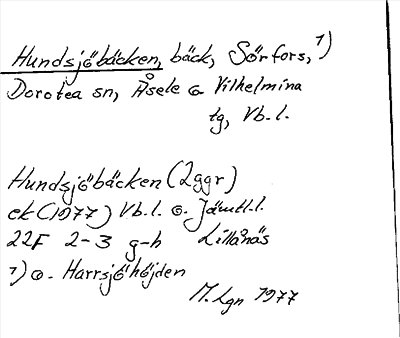 Hundsjöbäcken, bäck, Sörfors, 1)
Dorotea sn, Åsele o. Vilhelmina
tg, Vb.l.
Hundsjöbäcken (2ggr)
ek (1977) Vb.l. o. Jämtl.l.
22F 2-3 g-h Lillånäs
1) o. Harrsjöhöjden
M.Lgn 1977